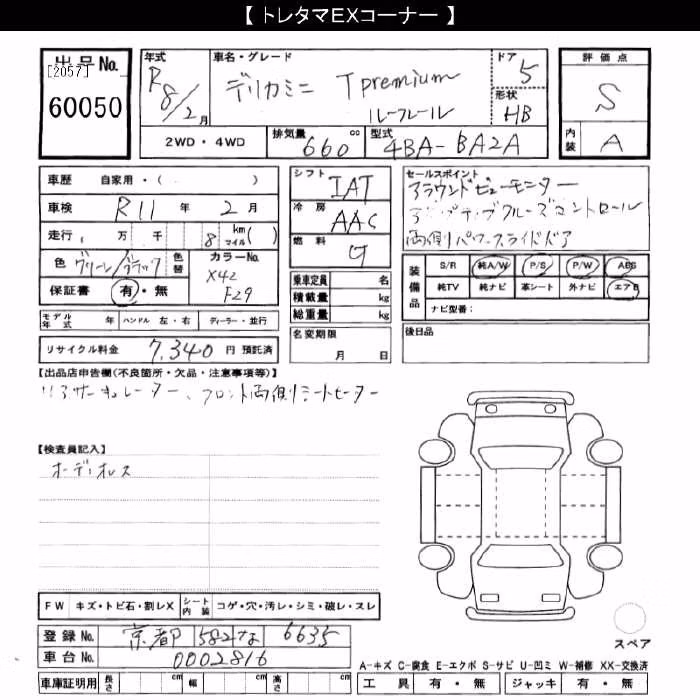 【 トレタマEXコーナー 】
出品No.
[2057]
60050
年式
R8/2月
車名・グレード
デリカミニ Tpremium
ルーフレール
ドア
5
形状
HB
評価点
S
内装
A
2WD・4WD
排気量
660 cc
型式
4BA-BA2A
車歴 自家用・( )
車検 R11 年 2 月
走行 万 千 8 km マイル( )
色 グリーン/ブラック 色替
カラーNo.
X42
F29
保証書 有・無
シフト
IAT
冷房
AAC
燃料
G
乗車定員 名
積載量 kg
総重量 kg
セールスポイント
アラウンドビューモニター
アダプティブクルーズコントロール
両側パワースライドドア
装備品
S/R 純A/W P/S P/W ABS
純TV 純ナビ 革シート 外ナビ エアB
ナビ型番:
モデル年式 年 ハンドル 左・右 ディーラー・並行
名変期限
月 日
後日品
リサイクル料金 7,340 円 預託済
【出品店申告欄(不良箇所・欠品・注意事項等)】
リアサーキュレーター、フロント両側シートヒーター
【検査員記入】
オーディオレス
FW キズ・トビ石・割レX シート内装 コゲ・穴・汚レ・シミ・破レ・スレ
登録No. 京都 582 な 6635
車台No. 0002816
車庫証明用 長さ cm 幅 cm 高さ cm
スペア
A-キズ C-腐食 E-エクボ S-サビ U-凹ミ W-補修 XX-交換済
工具 有・無 ジャッキ 有・無